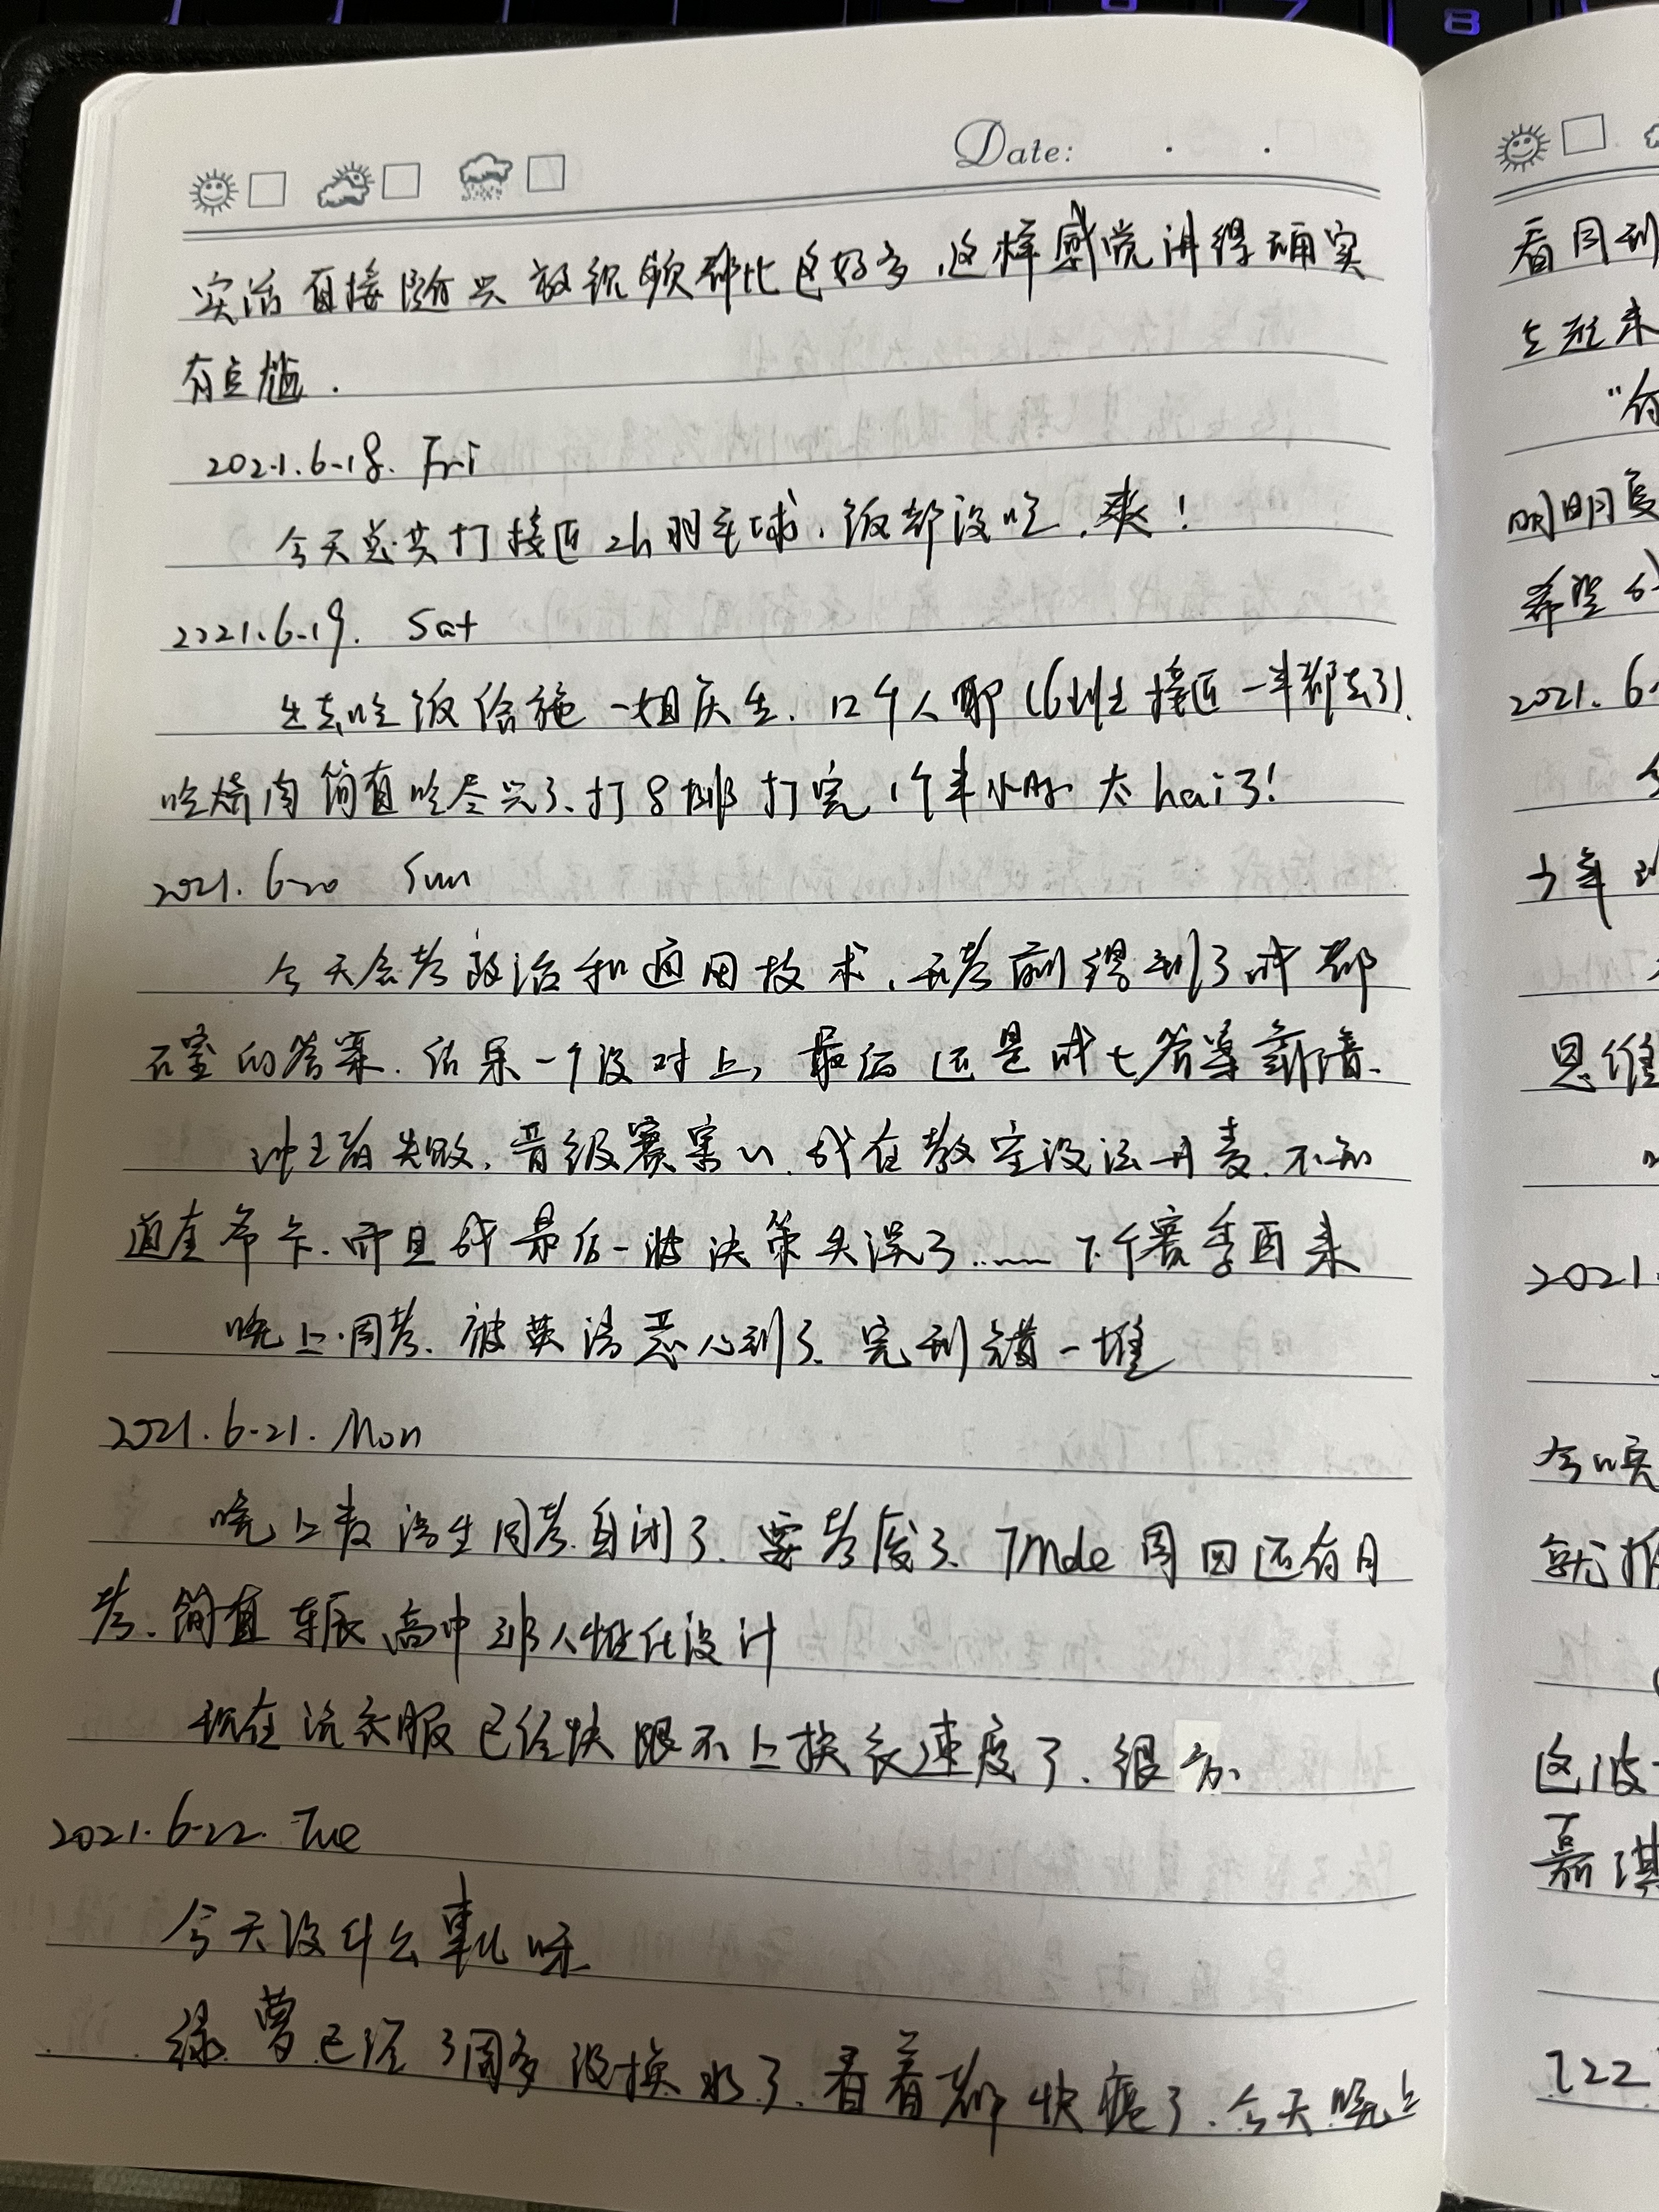 Date:
实话直接随兴放视频都比这好多,这样感觉讲得确实
有点尬.
2021.6.18. Fri
今天总共打接近2h羽毛球,饭都没吃,爽!
2021.6.19. Sat
出去吃饭给施一姐庆生.12个人耶(6班接近一半都去了).
吃烤肉简直吃尽兴了、打8球打完1个半小时.太hai了!
2021.6.20 Sun
今天会考政治和通用技术,开考前得到了成都
石室的答案.结果一个没对上,最后还是成七答案靠谱.
冲王者失败,晋级赛寄了.我在教室没法开麦.不知
道奎希卡.而且我最后一波决策失误了……下个赛季再来
晚上周考.被英语恶心到了.完型错一堆
2021.6.21. Mon
晚上数语生周考.自闭了.要考废了、Tmde周四还有月
考.简直东辰高中部人性化设计
现在洗衣服已经快跟不上换衣速度了.很
2021.6.22. Tue
今天没什么事儿呀
绿萝已经3周多没换水了.看着都快蔫了.今天晚上
看
明明
希望
2021.6
少年
思维
2021.
就
这波
嘉淇
722